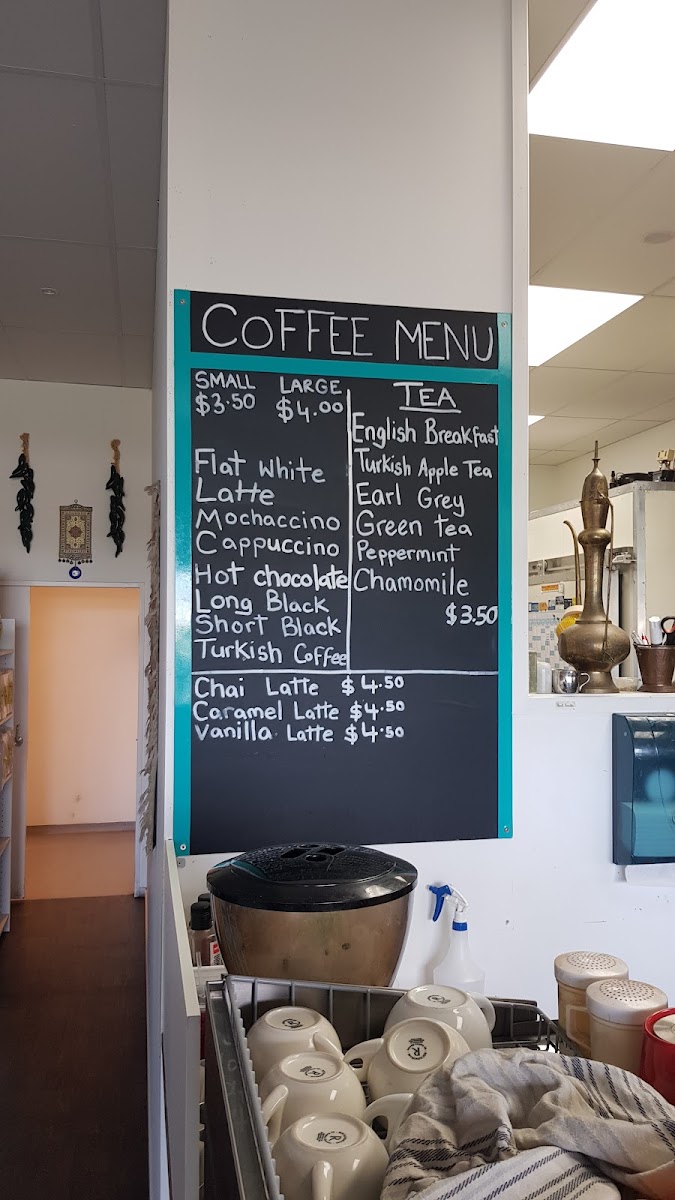 COFFEE MENU
SMALL LARGE
$3.50 $4.00
Flat white
Latte
Mochaccino
Cappuccino
Hot chocolate
Long Black
Short Black
Turkish Coffee
TEA
English Breakfast
Turkish Apple Tea
Earl Grey
Green tea
Peppermint
Chamomile
$3.50
Chai Latte $4.50
Caramel Latte $4.50
Vanilla Latte $4.50
R
R
R